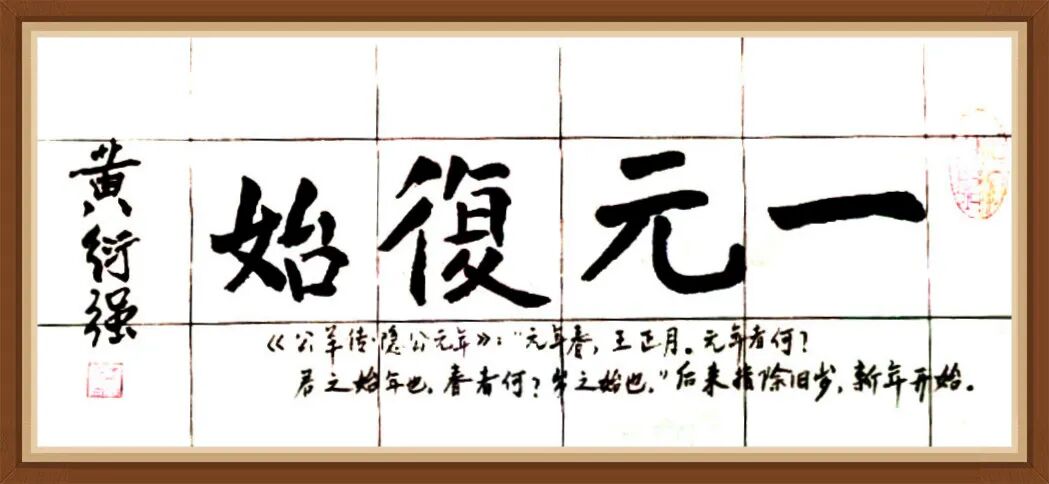 一元復始
《公羊传·隐公元年》："元年春，王正月。元年者何？
君之始年也，春者何？岁之始也，"后来指除旧岁，新年开始。
黄衍强